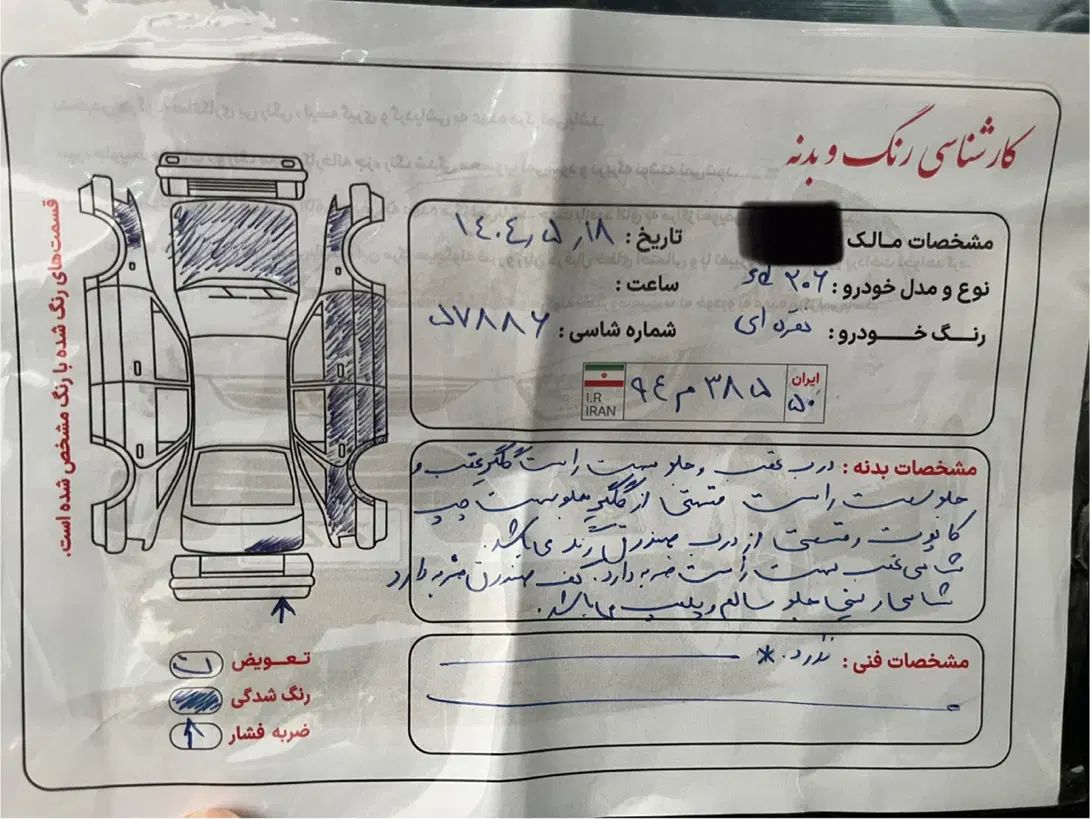 کارشناسی رنگ و بدنه
مشخصات مالک
تاریخ : ۱۴۰۴٫۵٫۱۸
نوع و مدل خودرو : ۲۰۶ sd
ساعت :
رنگ خودرو : نقره ای
شماره شاسی : ۵۷۸۸۶
ایران
۵۰
۹۴ م ۳۸۵
I.R
IRAN
مشخصات بدنه : درب عقب و جلو سمت راست گلگیر عقب و
جلو سمت راست قسمتی از گلگیر جلو سمت چپ
کاپوت و قسمتی از درب صندوق رنگ می باشد.
شاسی عقب سمت راست ضربه دارد. کف صندوق ضربه دارد
شاسی سینی جلو سالم و پلمپ می باشد.
مشخصات فنی : ندارد. *
قسمت‌های رنگ شده با رنگ مشخص شده است.
تعویض ت
رنگ شدگی
ضربه فشار